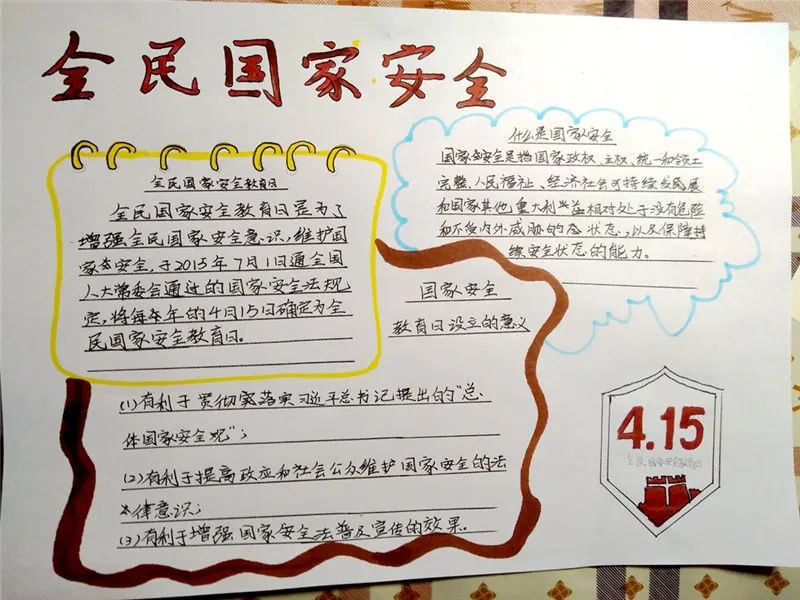 全民国家安全
全民国家安全教育日
全民国家安全教育日是为了
增强全民国家安全意识，维护国
家安全，于2015年7月1日通全国
人大常委会通过的国家安全法规
定，将每年年的4月15日确定为全
民国家安全教育日。
什么是国家安全
国家安全是指国家政权、主权、统一和领土
完整、人民福祉、经济社会可持续发展
和国家其他重大利益相对处于没有危险
和不受内外威胁的状态，以及保障持
续安全状态的能力。
国家安全
教育日设立的意义
(1)有利于贯彻落实习近平总书记提出的“总
体国家安全观”；
(2)有利于提高政府和社会公众维护国家安全的法
律意识；
(3)有利于增强国家安全法普及宣传的效果。
4.15